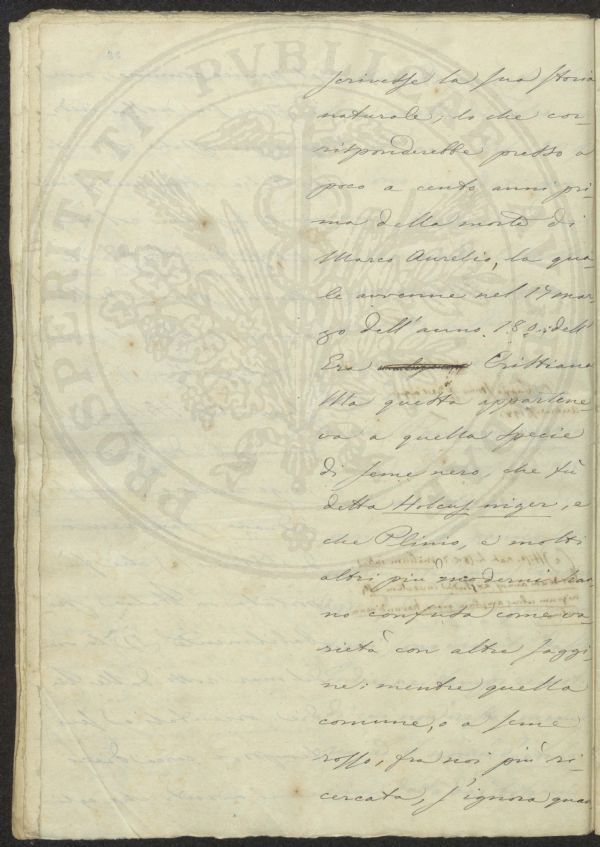 scrivesse la sua storia
naturale; lo che cor-
risponderebbe presso a
poco a cento anni pri-
ma della morte di
Marco Aurelio, la qua-
le avvenne nel 17 mar-
zo dell'anno 180 dell'
Era Cristiana
Ma questa appartene-
va a quella specie
di seme nero, che fù
detta Holcus niger, e
che Plinio, e molti
altri più moderni han-
no confusa come va-
rietà con altre saggi-
ne; mentre quella
comune, o a seme
rosso, fra noi più ri-
cercata, s'ignora quan
PROSPERITATI PVBLICAE